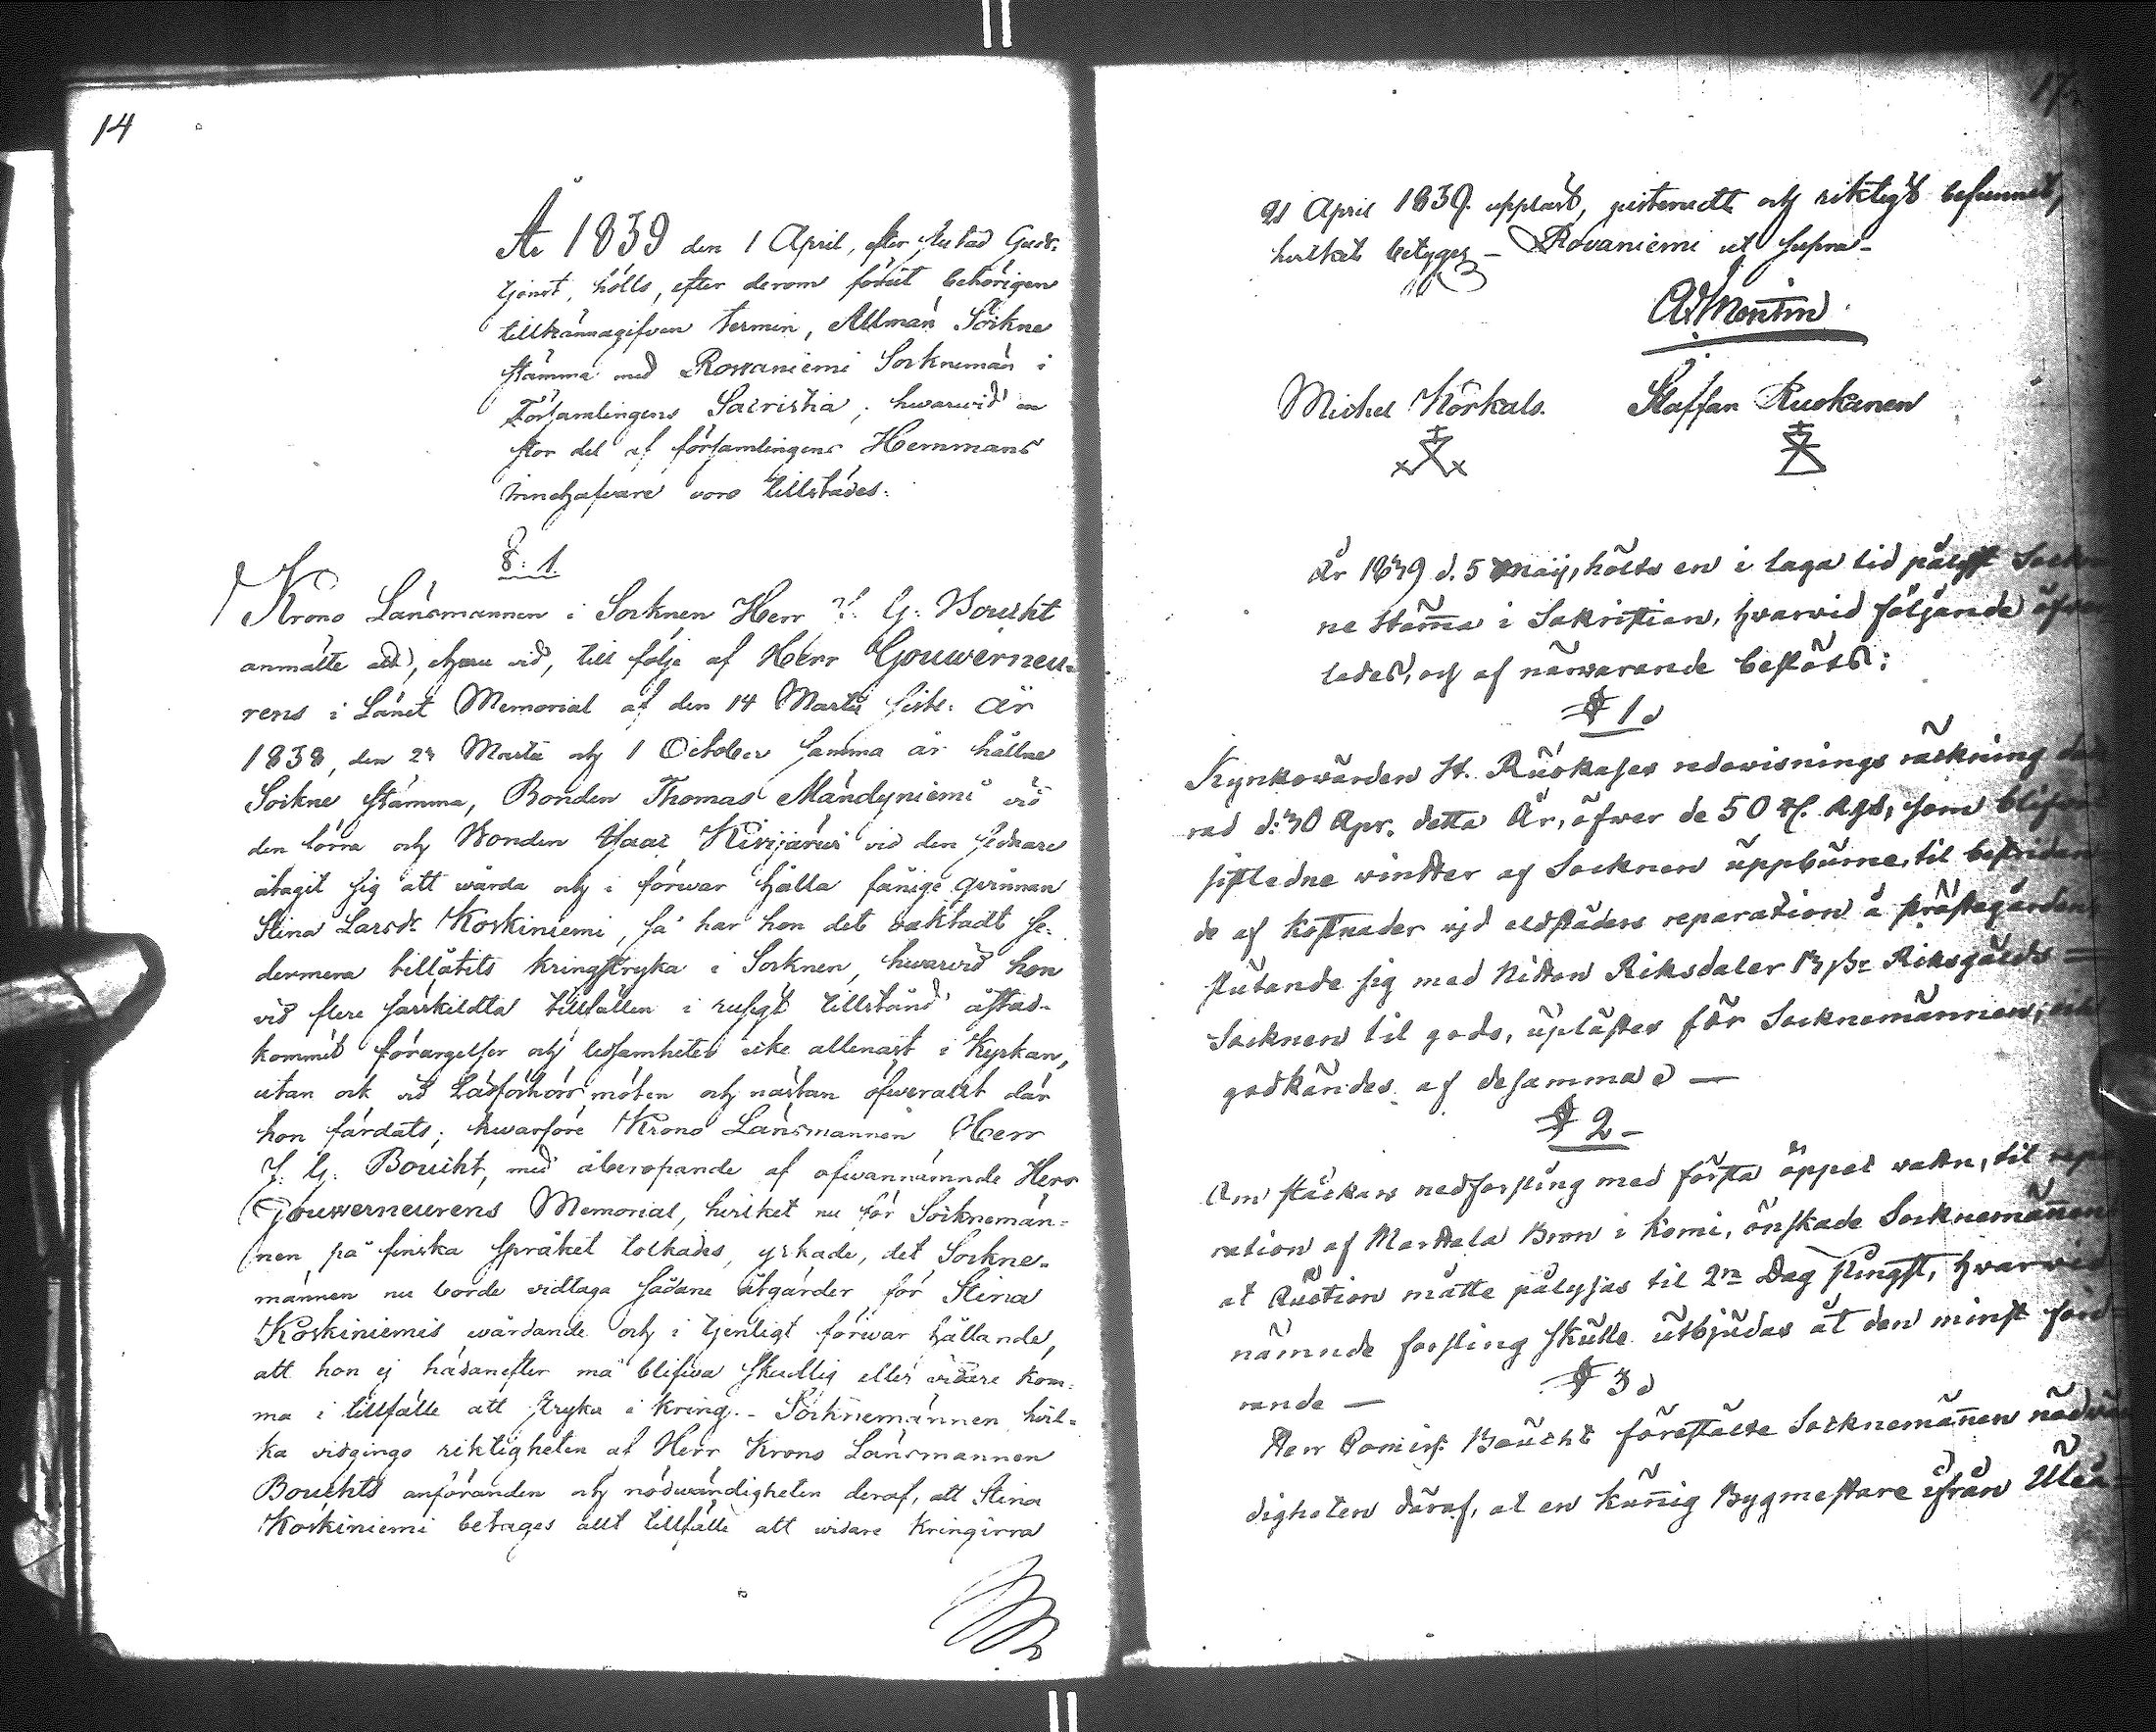 14
År 1839 den 1 April, efter slutad Guds-
tjenst, hölls, efter derom förut behörigen
tillkännagifven termin, Allmän Sockne
stämma med Rovaniemi Socknemän i
Församlingens Sacristia, hwarvid en
stor del af församlingens Hemmans
innehafvare voro tillstädes.
§. 1.
Krono Länsmannen i Socknen Herr J. G. Boucht
anmälte att, ehuru vid, till följe af Herr Gouverneu-
rens i Länet Memorial af den 14 Martii sistl. år
1838, den Martii och 1 October samma år hållne
Sockne stämma, Bonden Thomas Mändyniemi vid
den förra och Bonden Isac Hirvijärvi vid den sednare
åtagit sig att wårda och i förwar hålla fånige qvinnan
Stina Larsdr Koskiniemi, så har hon det oaktadt se-
dermera tillåtits kringstryka i Socknen, hwarvid hon
vid flere särskildta tillfällen i rusigt tillstånd åstad-
kommit förargelser och ledsamheter icke allenast i Kyrkan,
utan ock vid Läsförhörs möten och nästan öfwerallt där
hon färdats; hwarföre Krono Länsmannen Herr
J. G. Boucht, med åberopande af ofwannämnde Herr
Gouwerneurens Memorial, hvilket nu för Socknemän-
nen på finska språket tolkades, yrkade, det Sockne-
männen nu borde vidtaga sådane åtgärder för Stina
Koskiniemis wårdande och i tjenligt förwar hållande,
att hon ej hädanefter må blifwa skadlig eller vidare kom-
ma i tillfälle att stryka i kring. - Socknemännen hvil-
ka vidgingo riktigheten af Herr Krono Länsmannen
Bouchts anföranden och nödwändigheten deraf, att Stina
Koskiniemi betages allt tillfälle att widare kringirra
21 April 1839. uppläst, justeradt och riktigt befunnet,
hvilket betyges - Rovaniemi ut supra -
Michel Körkalo. Staffan Ruokanen
År 1839 d. 5 Maij, hölts en i laga tid pålyst Sock
ne Stämma i Sakristian, hvarvid följande
lades, och af närvarande beslöts:
§ 1
Kyrkovärden St. Ruokases redovisnings räkning
rad d: 30 Apr. detta År, öfwer de 50 Rgs, som blifwi
sistledne vintter af Socknen uppburne, til bestridan
de af kostnader vid eldstäders reparation å prästegården
slutande sig med Nitton Riksdaler Riksgälds
Socknen til godo, upläftes för Socknemännen,
godkändes af desamma —
§ 2 -
Om stockars nedforsling med första öppet vattn, til repa
ration af Marttala Bron i Kemi, önskade Socknemännen
at Auction måtte pålysas til 2n Dag Pingst, hvarvid
nämnde forsling skulle utbjudas åt den minst ford-
rande —
§ 3
Herr Boucht förestälte Socknemännen nödvän
digheten däraf, at en kunnig Bygmestare ifrån Uleå-